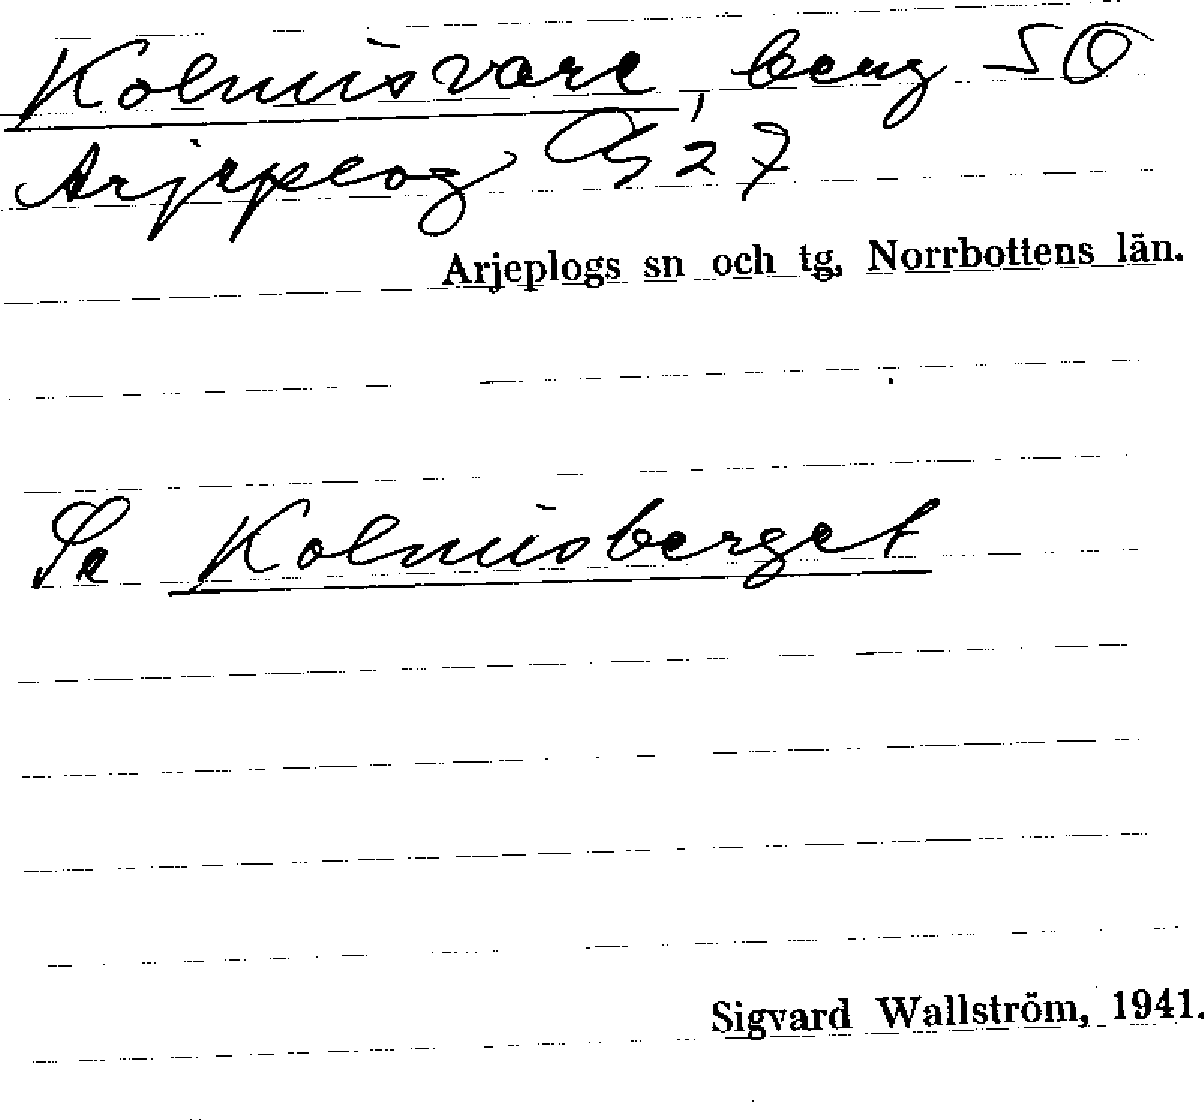 Kolmisvare, berg SO
Arjeplog G 27
Arjeplogs sn och tg, Norrbottens län.
Se Kolmisberget
Sigvard Wallström, 1941.